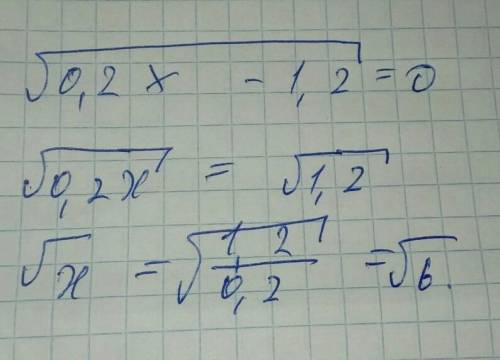 √0,2x - 1,2 = 0
√0,2x = √1,2
√x = √1,2/0,2 = √6.